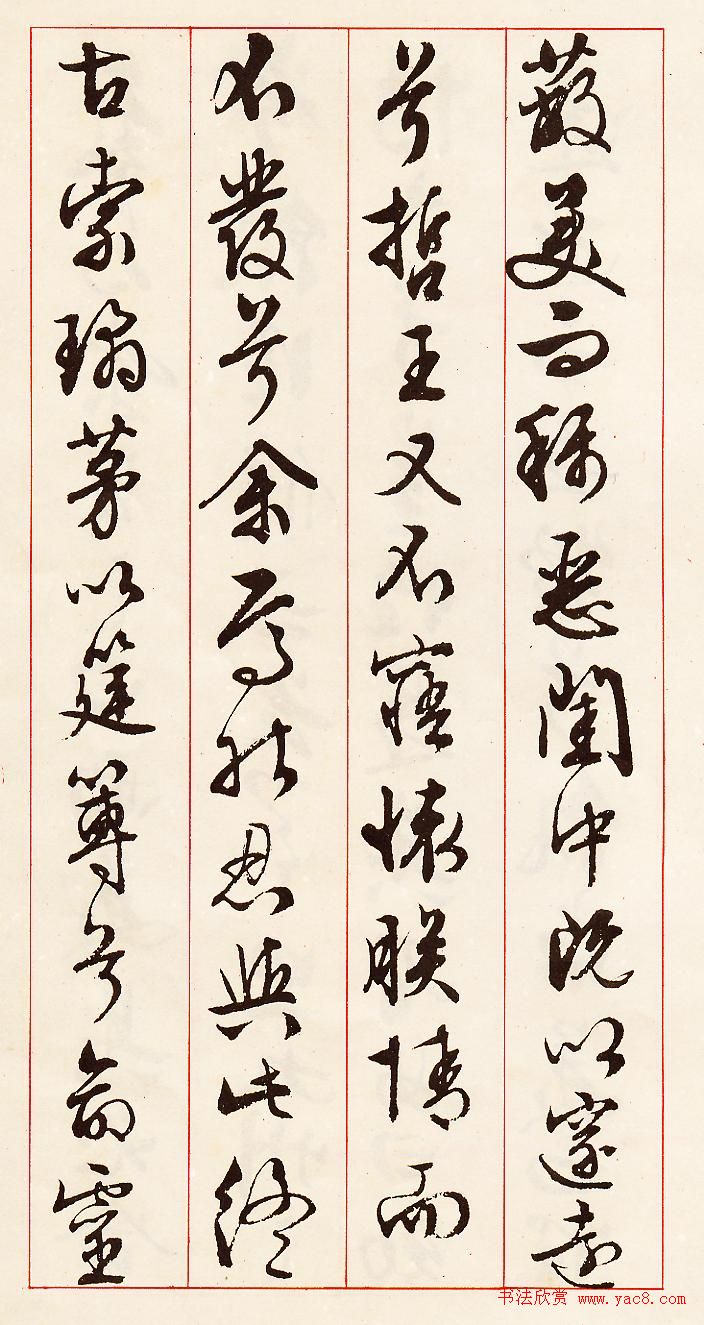 蔽美而稱惡閨中既以邃遠
兮哲王又不寤懷朕情而
不發兮余焉能忍與此終
古索璚茅以筳篿兮命靈
书法欣赏 www.yac8.com